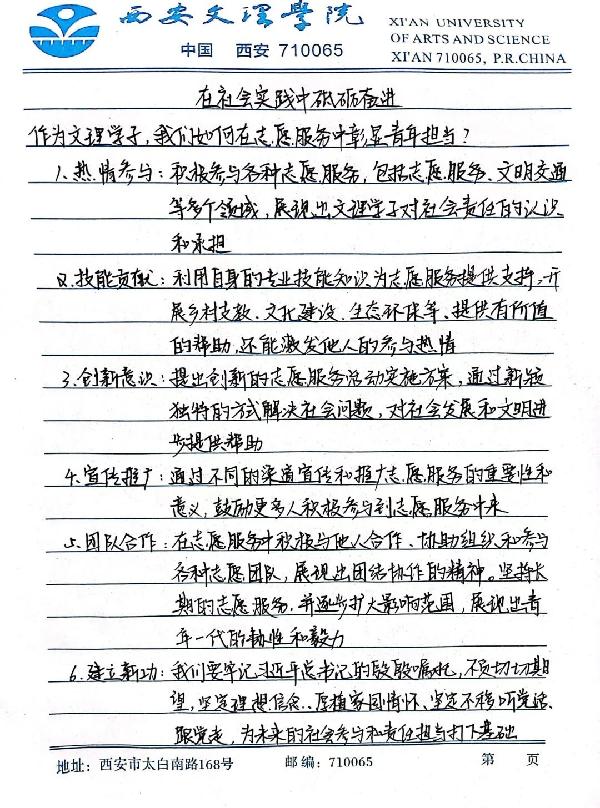 西安文理学院
XI'AN UNIVERSITY
OF ARTS AND SCIENCE
中国 西安 710065
XI'AN 710065, P.R.CHINA
在社会实践中砥砺奋进
作为文理学子,我们如何在志愿服务中彰显青年担当?
1.热情参与:积极参与各种志愿服务,包括志愿服务、文明交通
等多个领域,展现出文理学子对社会责任的认识
和承担
2.技能贡献:利用自身的专业技能知识为志愿服务提供支持,开
展乡村支教、文化建设、生态环保等、提供有价值
的帮助,还能激发他人的参与热情
3.创新意识:提出创新的志愿服务活动实施方案,通过新颖
独特的方式解决社会问题,对社会发展和文明进
步提供帮助
4.宣传推广:通过不同的渠道宣传和推广志愿服务的重要性和
意义,鼓励更多人积极参与到志愿服务中来
5.团队合作:在志愿服务中积极与他人合作、协助组织和参与
各种志愿团队,展现出团结协作的精神。坚持长
期的志愿服务,并逐步扩大影响范围,展现出青
年一代的韧性和毅力
6.建立新功:我们要牢记习近平总书记的殷殷嘱托,不负切切期
望,坚定理想信念、厚植家国情怀、坚定不移听党话、
跟党走,为未来的社会参与和责任担当打下基础
地址:西安市太白南路168号 邮编:710065 第 页